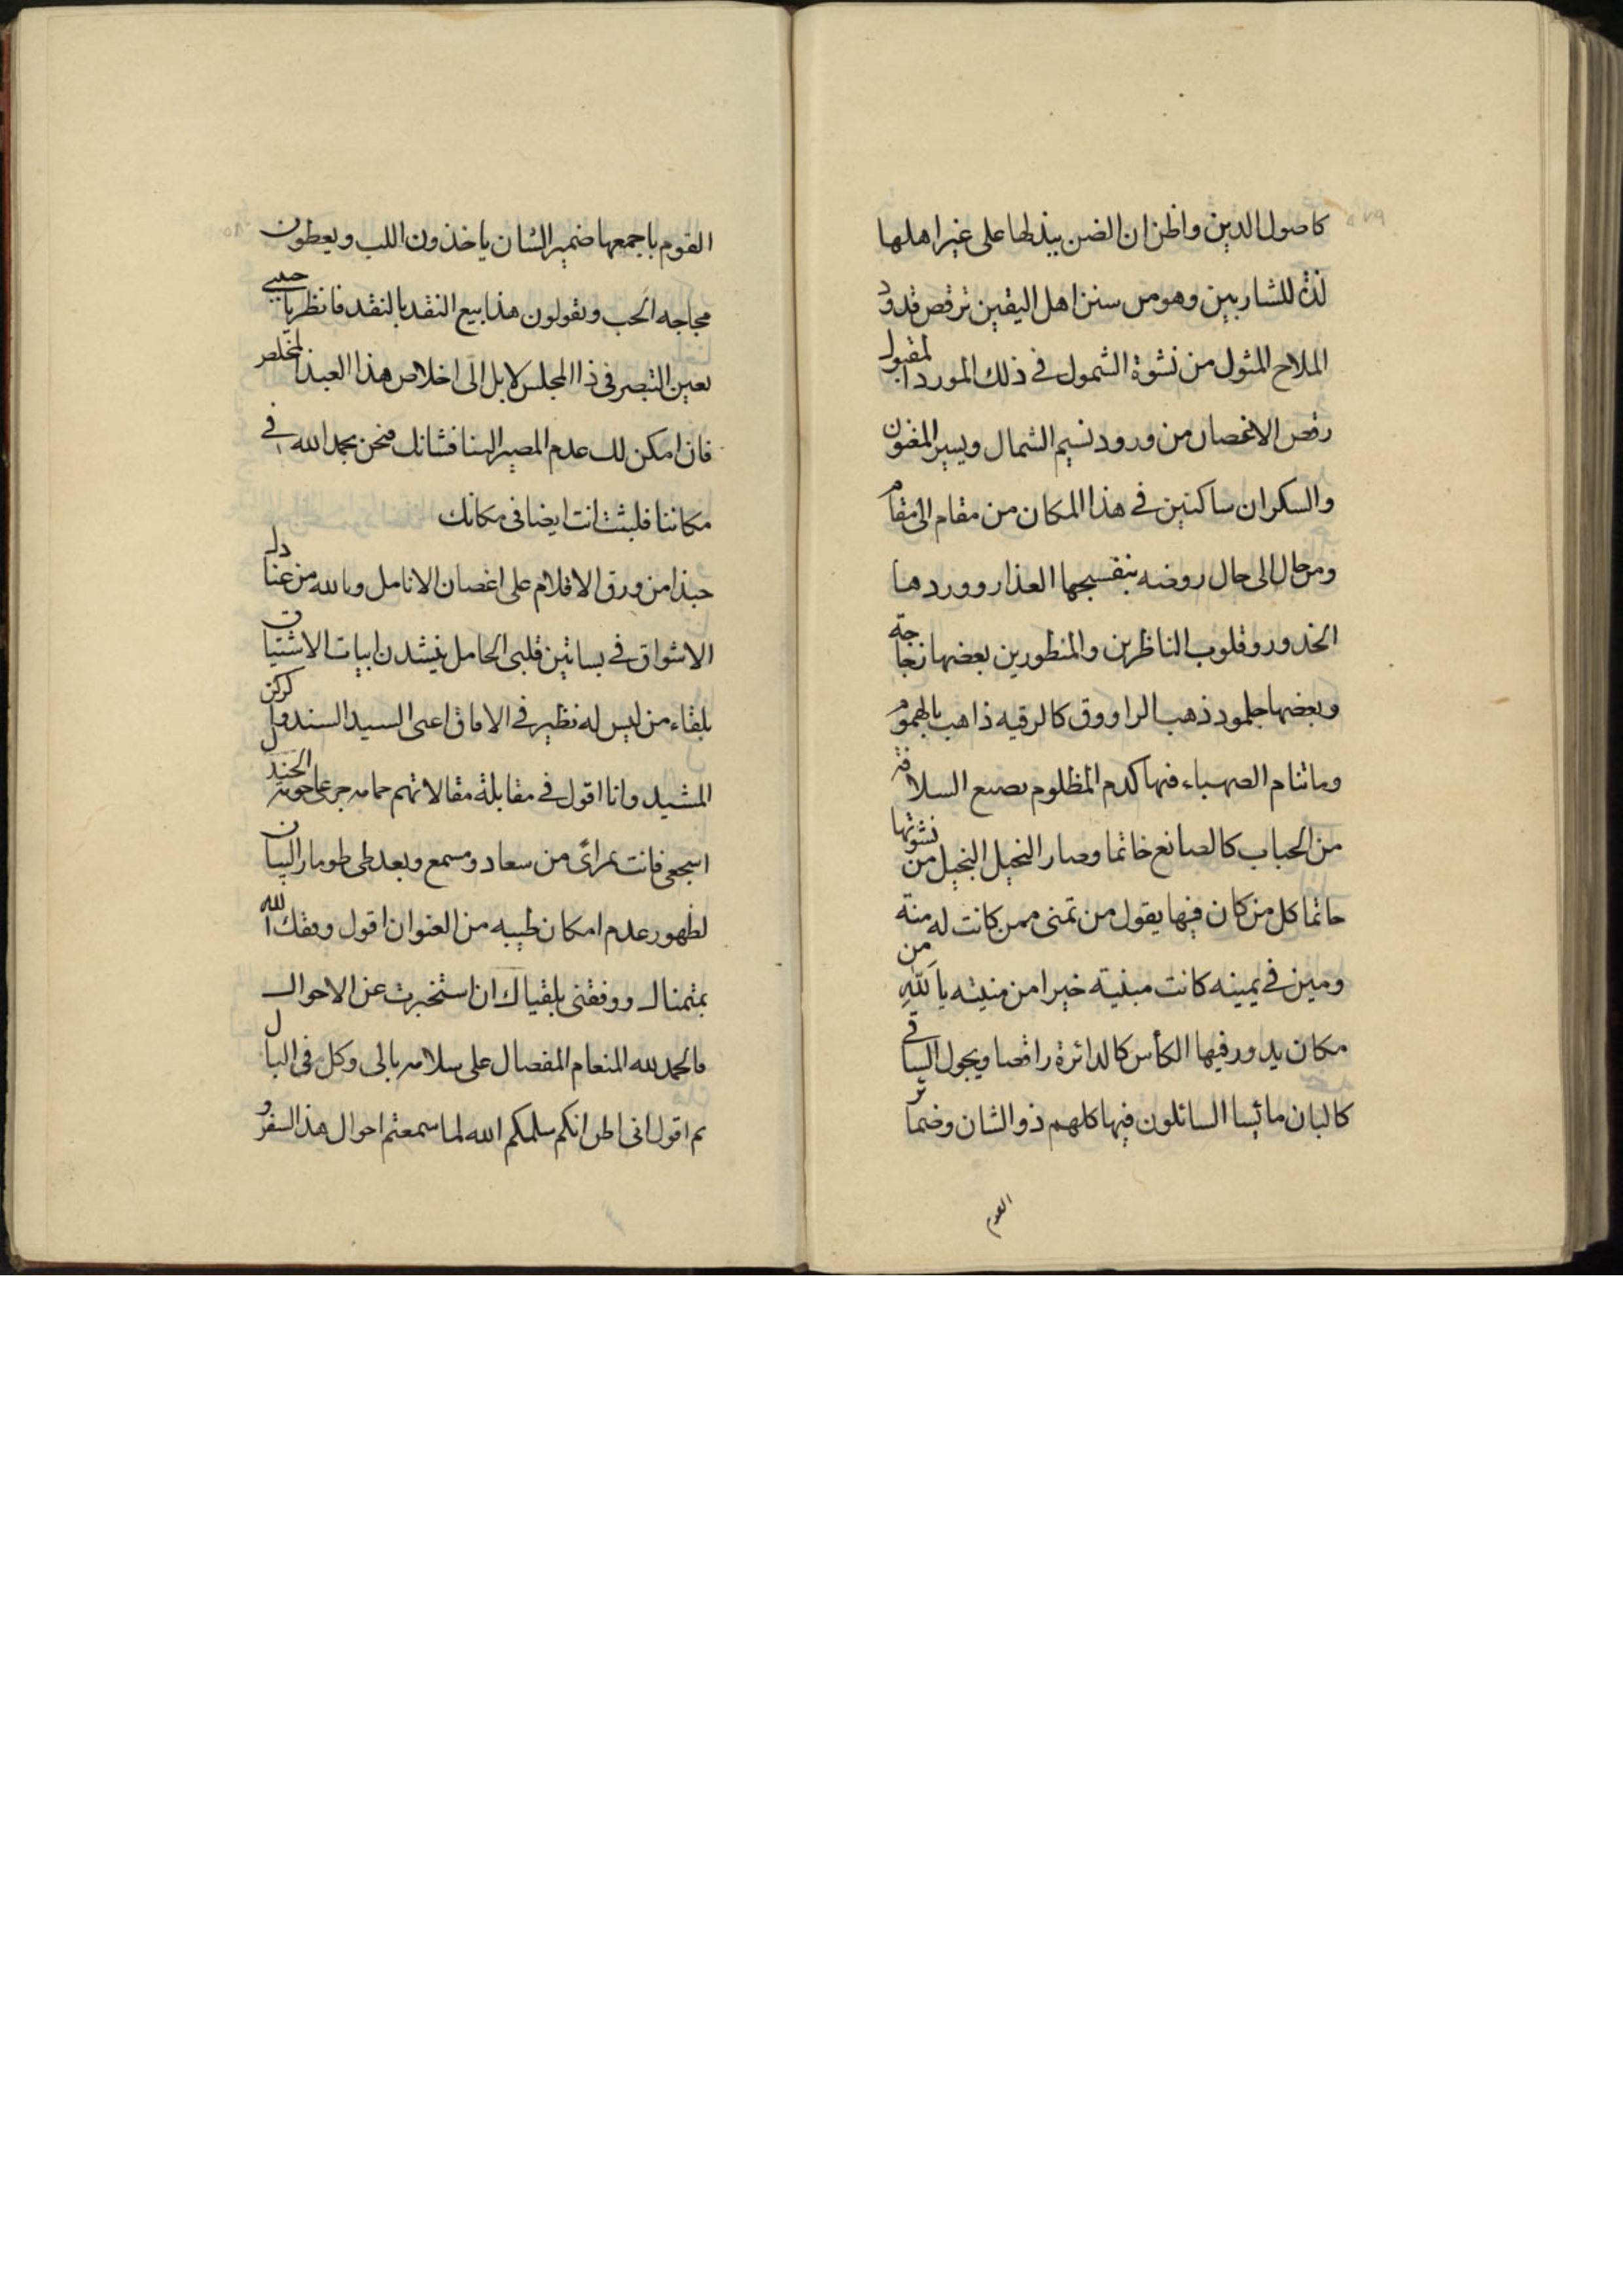 كاصول الدين واظن ان الضن يبذلها على غير اهلها
لذة للشاربين وهو من سنن اهل اليقين ترقص قدود
الملاح المثول من نشوة الشمول في ذلك المورد المقبول
رقص الاغصان من ورود نسيم الشمال ويسير المغبون
والسكران ساكنين في هذا المكان من مقام الى مقام
ومن حال الى حال روضه بنفسجها العذار ووردها
الخدور وقلوب الناظرين والمنظورين بعضها زجاجة
وبعضها جلمود ذهب الراووق كالرقيه ذاهب بالهموم
وماتنام الصهباء فيها كدم المظلوم يصنع السلافة
من الحباب كالصانع خاتما وصار البخيل البخيل من نشوتها
حاتما كل من كان فيها يقول من تمنى ممن كانت له منة
ومين في يمينه كانت مبنية خيرا من منيته يا لله من
مكان يدور فيها الكأس كالدائرة راقصا ويجول الساقي
كالبان مائسا السائلون فيها كلهم ذو الشان وضمائر
القوم
القوم باجمعها ضمير الشان ياخذون اللب ويعطون
مجاجه الحب ويقولون هذا بيع النقد بالنقد فانظر يا حبيبي
بعين التبصر في ذا المجلس لا بل الى اخلاص هذا العبد المخلص
فان امكن لك عدم المصير الينا فشانك فنحن بحمد الله في
مكاننا فلبثت انت ايضا في مكانك
حبذا من ورق الاقلام على اغصان الانامل وبالله من عنادل
الاشواق في بساتين قلبي الحامل ينشدن ابيات الاشتياق
بلقاء من ليس له نظير في الافاق اعنى السيد السند والركن
المشيد وانا اقول في مقابلة مقالاتهم حمامه جرعا حومة الجندل
اسجعي فانت بمرأى من سعاد ومسمع وبعد طى طومار البيان
لظهور عدم امكان طيبه من العنوان اقول وفقك الله
بمتمناك ووفقنى بلقياك ان استخبرت عن الاحوال
فالحمد لله المنعام المفضال على سلامه بالى وكل في البال
ثم اقول انى اظن انكم سلمكم الله لما سمعتم احوال هذا السفر و